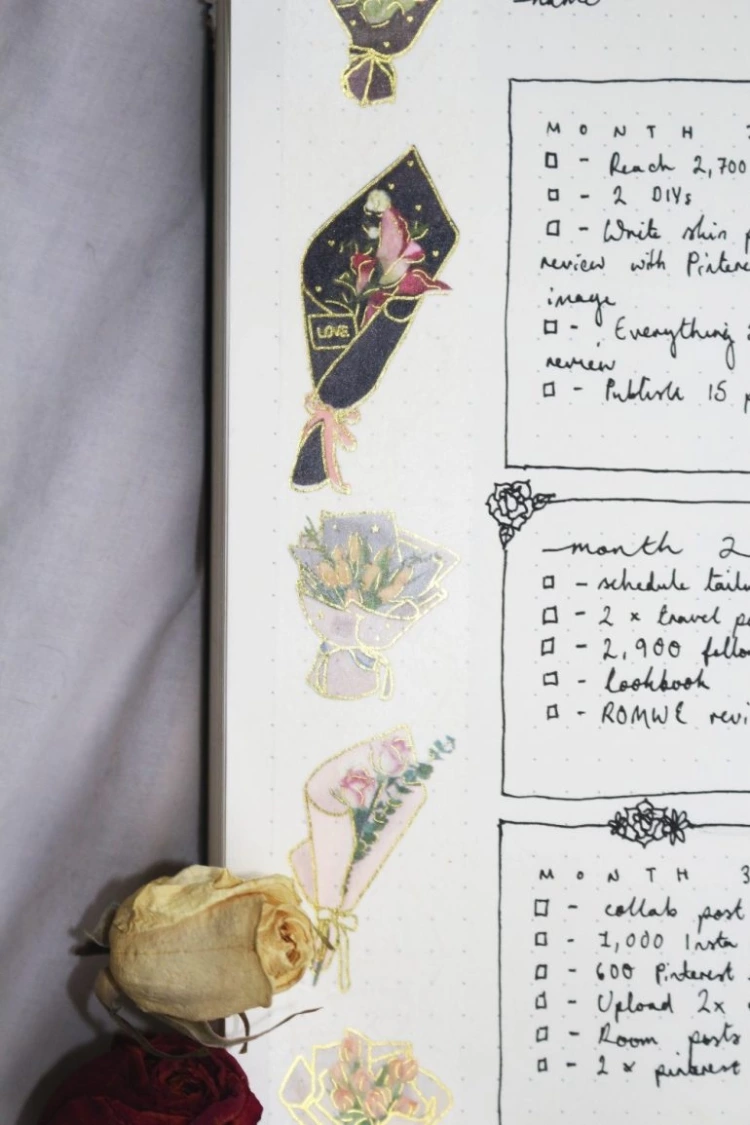 name
LOVE
MONTH
- Reach 2,700
- 2 DIYs
- Write skin
review with
image
- Everything
review
- Publish 15
month 2
- schedule
- 2 x travel
- 2,900
- lookbook
- ROMWE
MONTH 3
- collab post
- 1,000 Insta
- 600 Pinterest
- Upload 2x
- Room posts
- 2 x pinterest